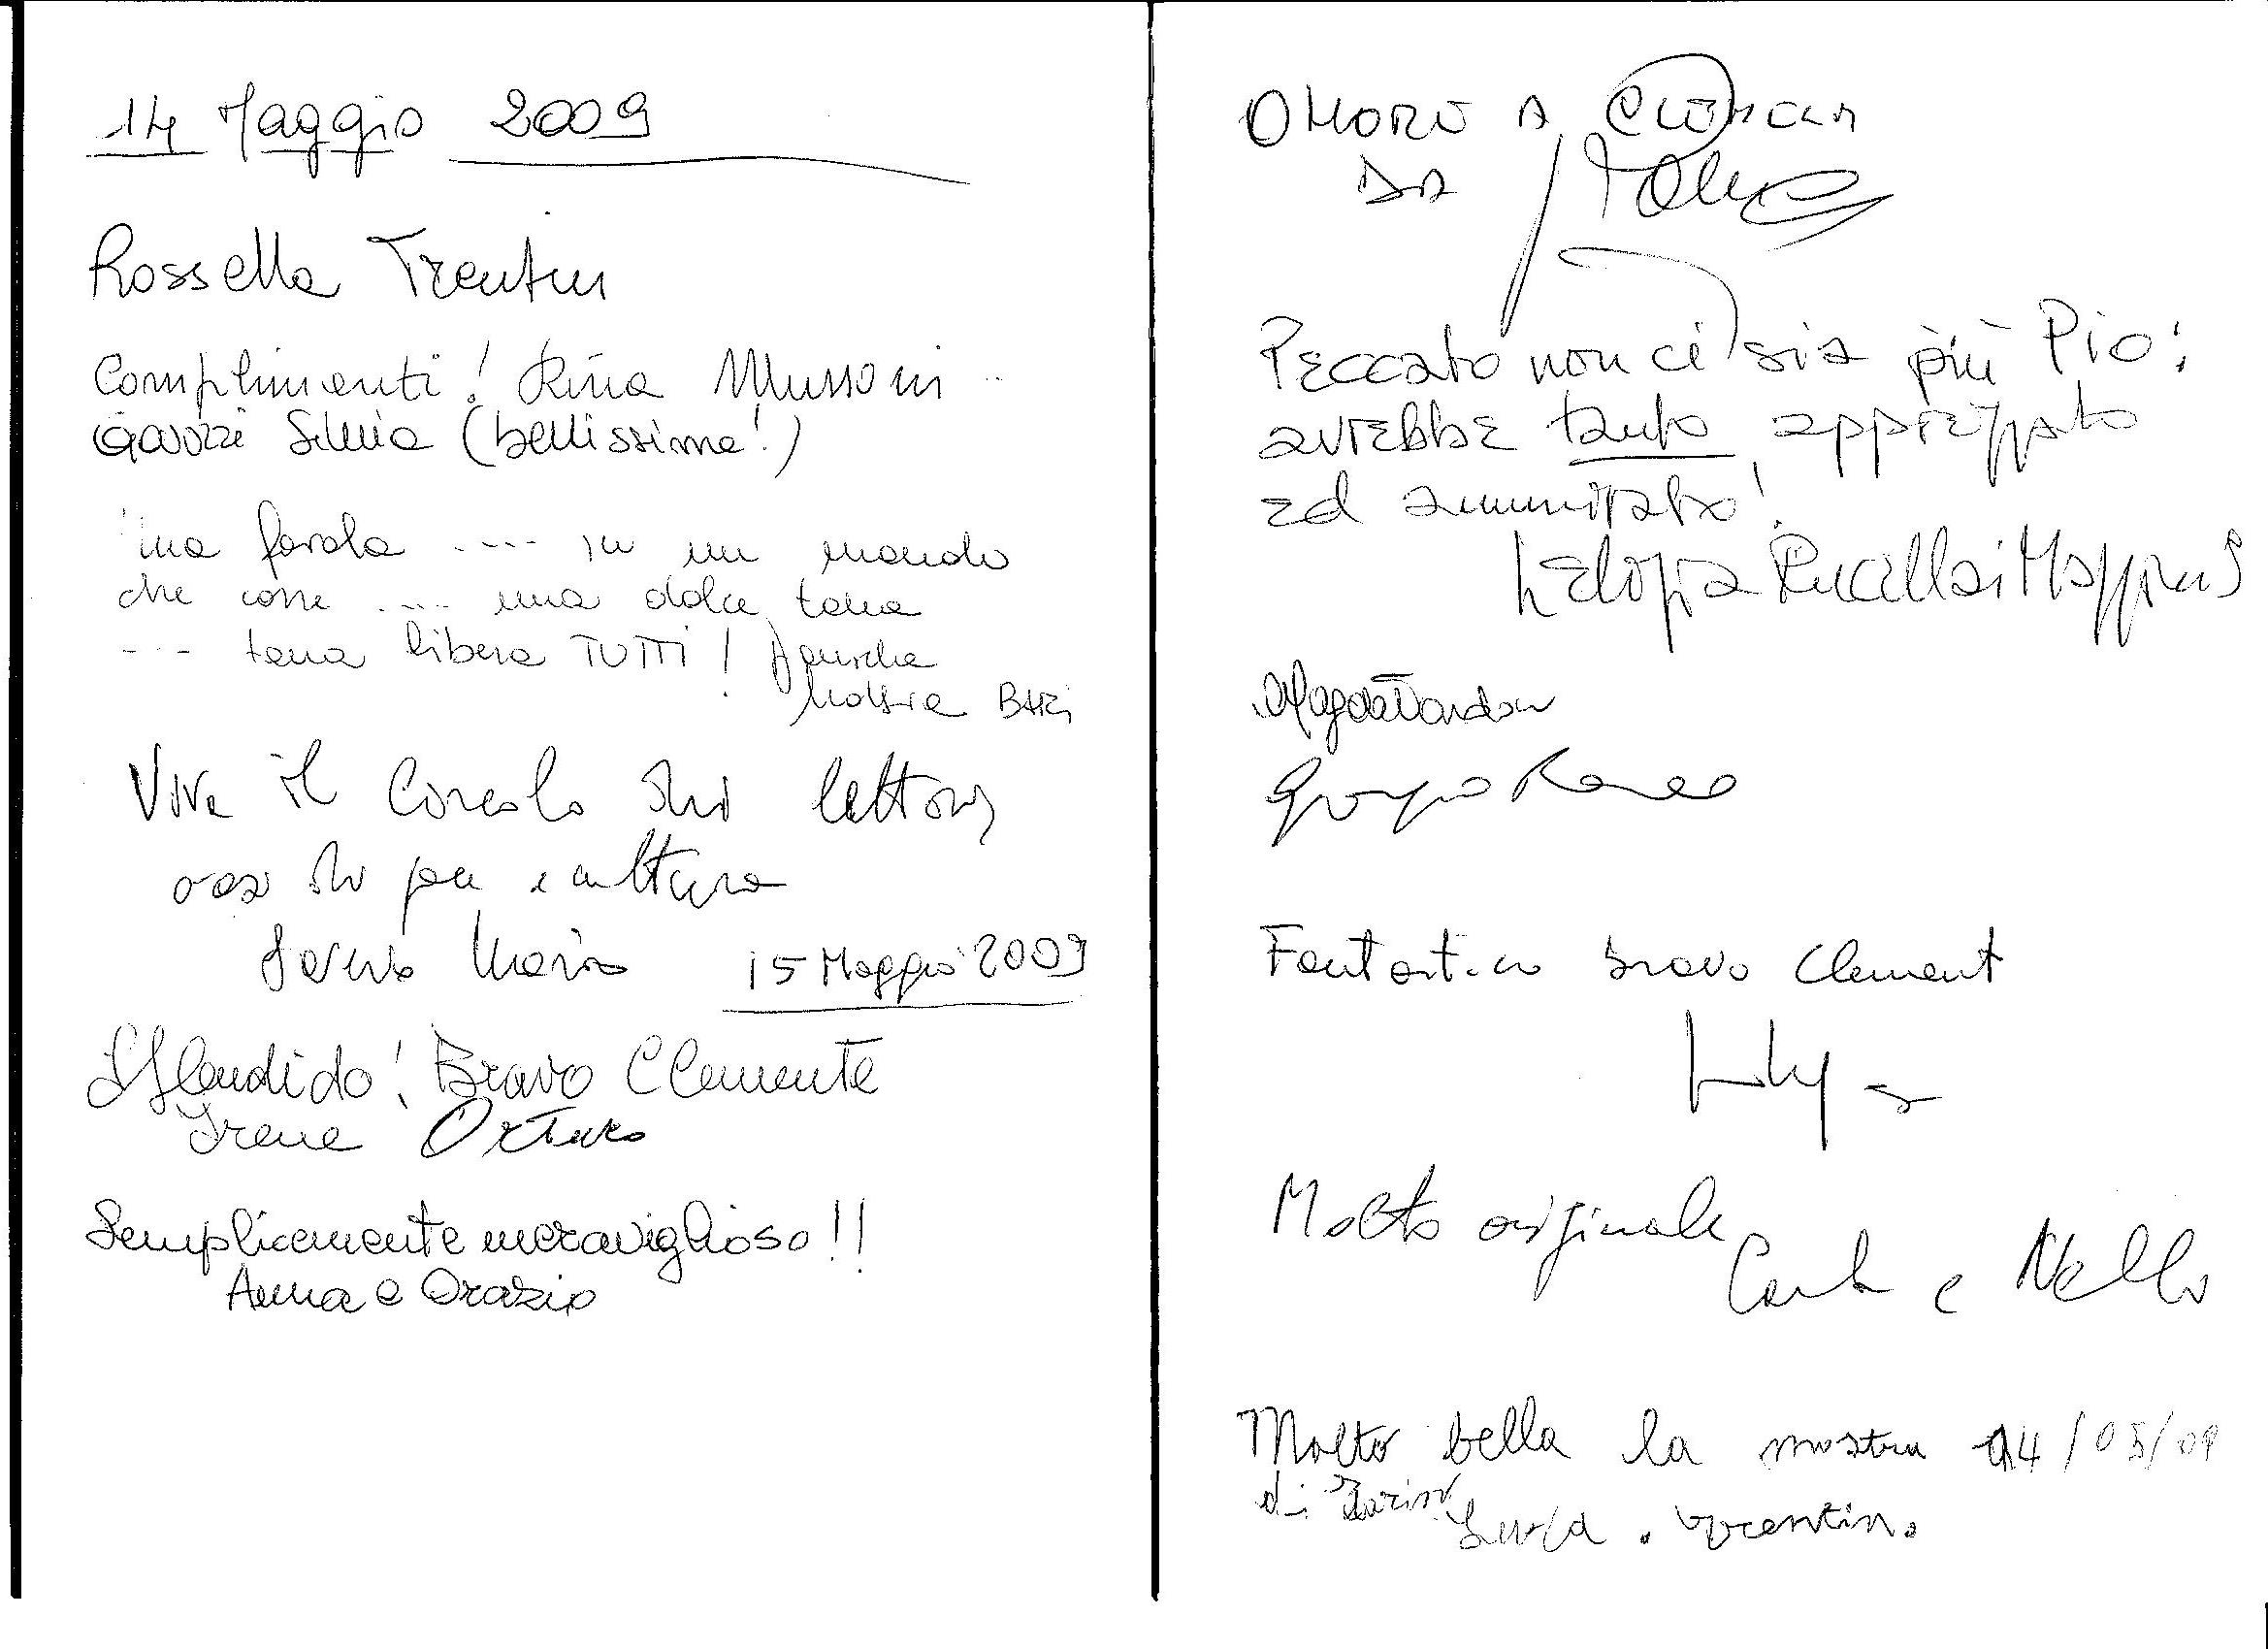 14 Maggio 2009
Rossella Trentin
Complimenti! Rina Mussoni
Gavozzi Silvia (bellissima!)
Una favola .... in un mondo
che corre .... una dolce tana
--- tana libera TUTTI!
BARI
Viva il Circolo dei lettori
oasi di pace e cultura
Maria 15 Maggio 2009
Splendido! Bravo Clemente
Irene Orturo
Semplicemente meraviglioso!!
Anna e Orazio
ONORE A
DA
Peccato non ci sia più Pio:
avrebbe tanto apprezzato
ed ammirato!
Rucellai
Magda
Fantastico bravo Clement
Molto originale
Carla e Nello
Molto bella la mostra 14/05/09
di
Luca . Trentin.